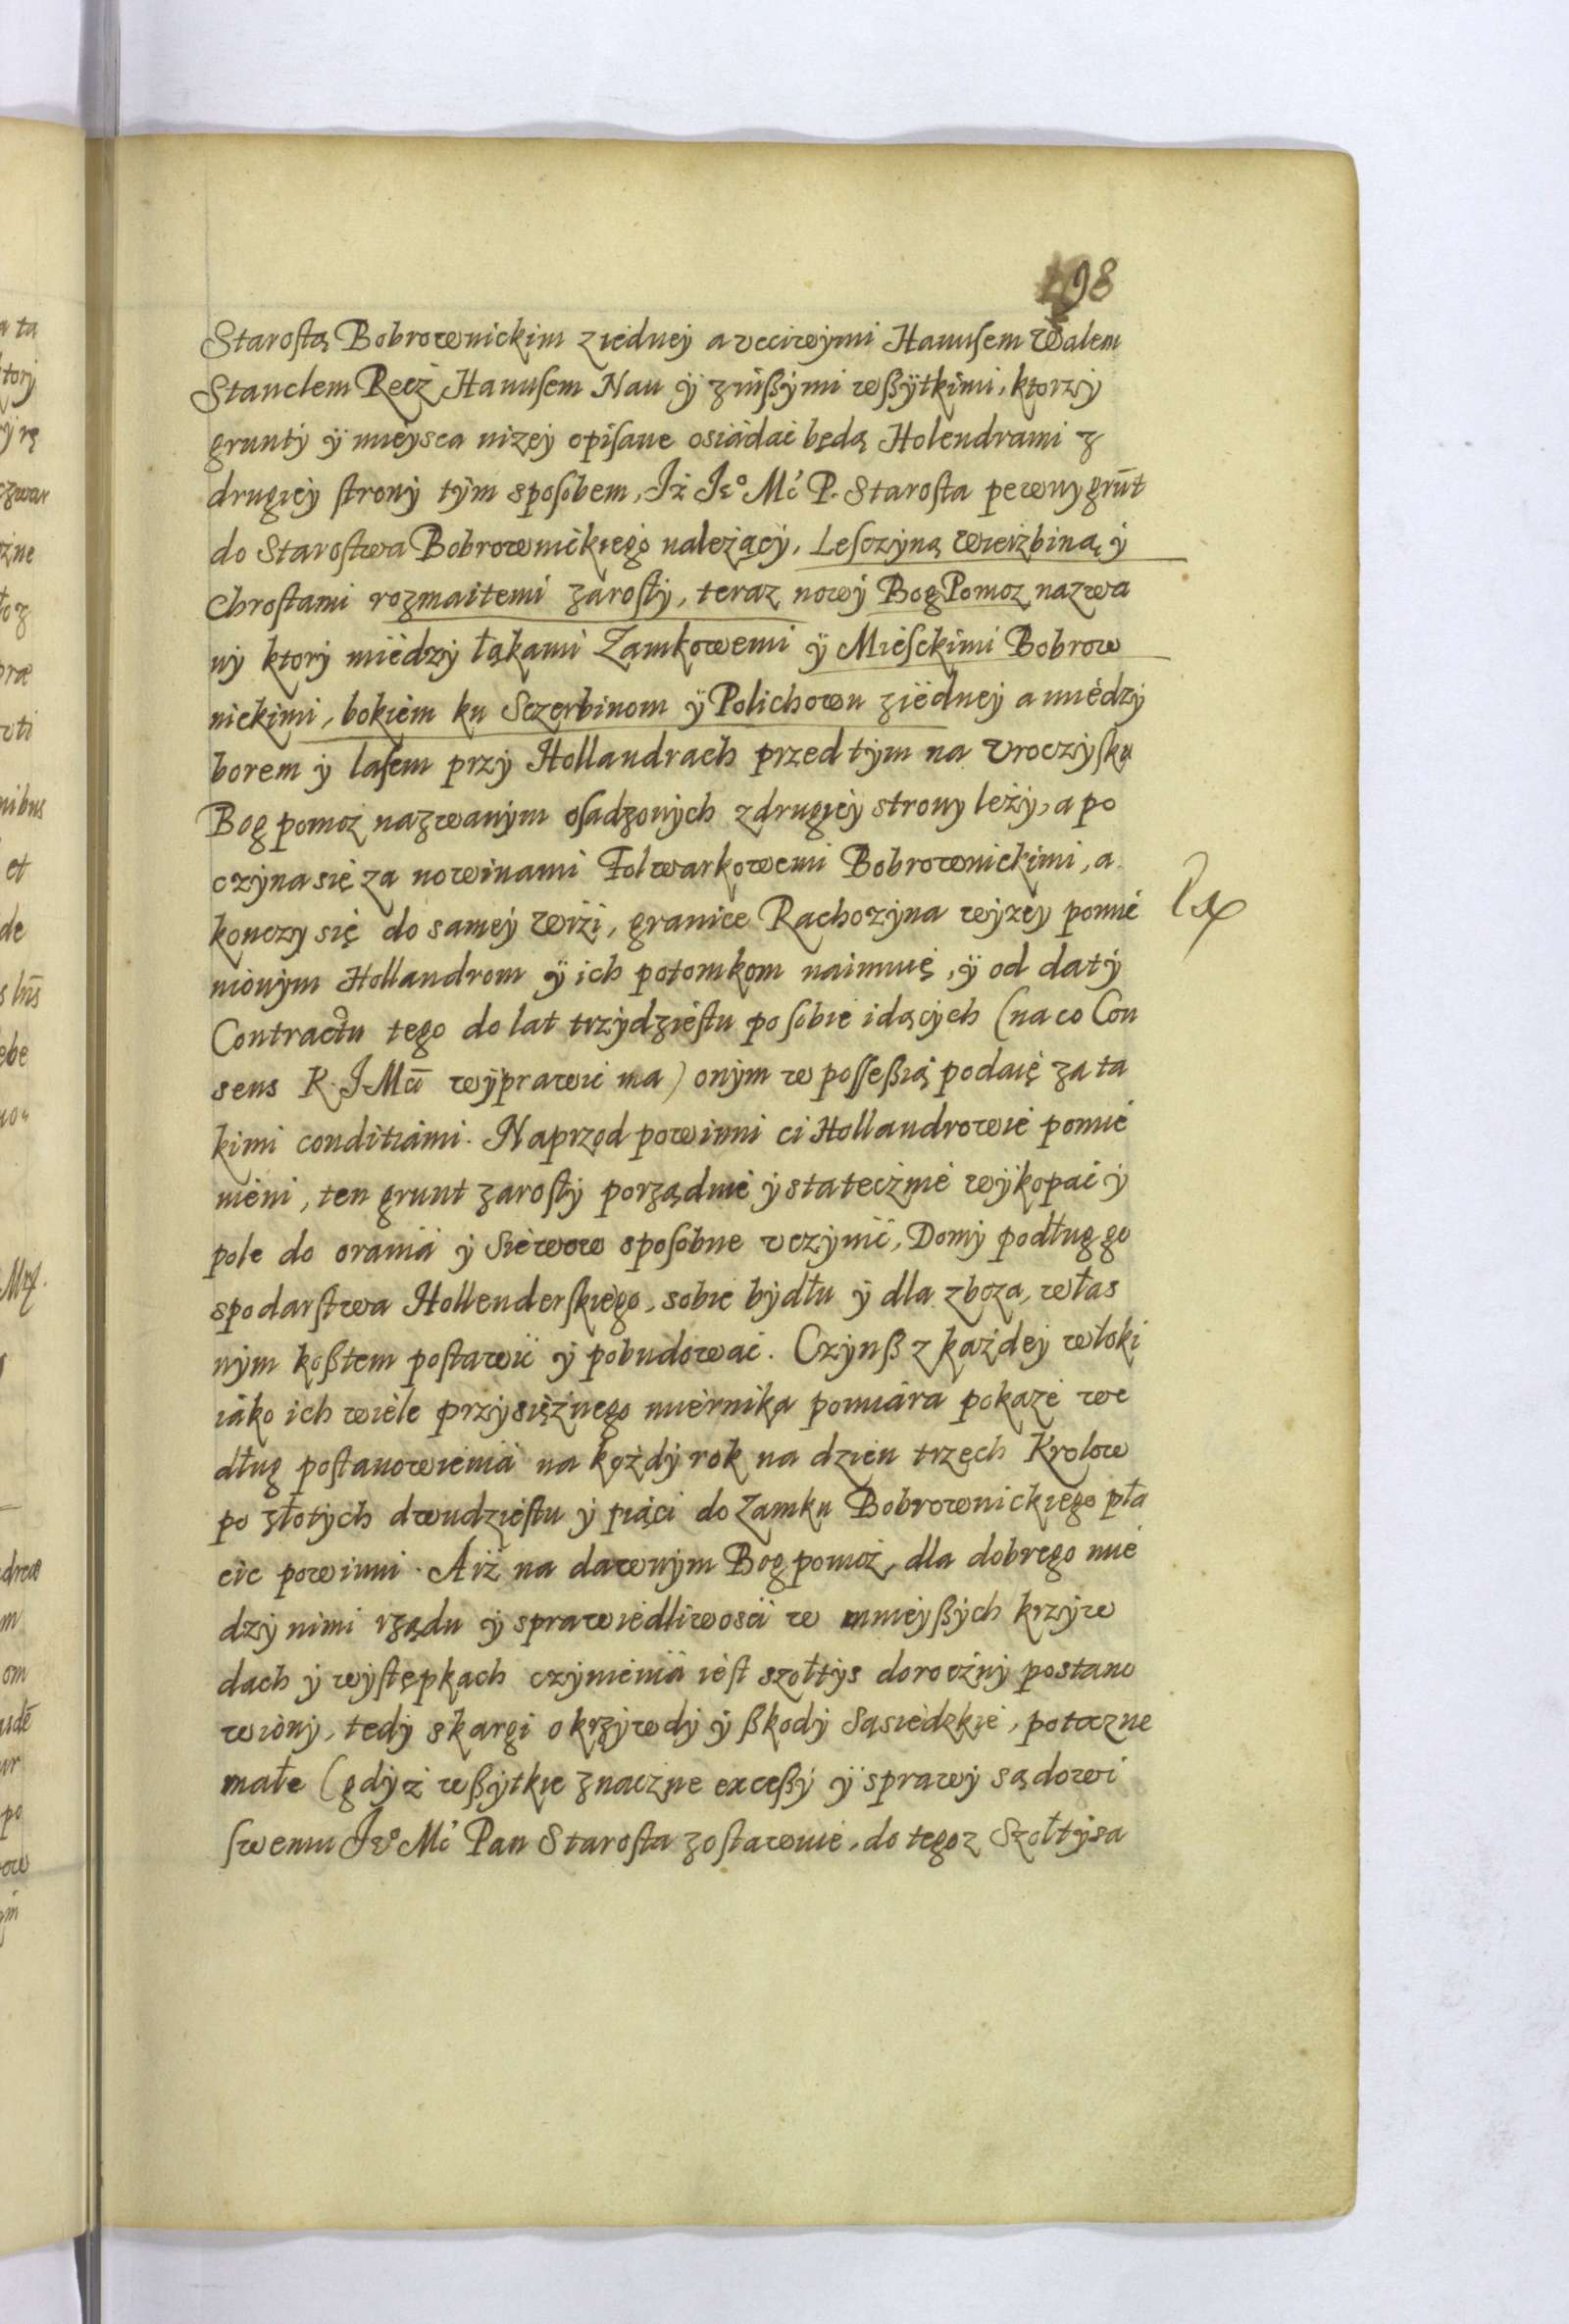 198
Starostą Bobrownickim ziedney a vcciwymi Hanusem Walem
Stanclem Recż Hanusem Nau ÿ zinßymi wßÿtkimi, ktorzy
grunty ÿ mieysca nizey opisane osiadać będą Holendrami z
drugiey strony tym sposobem, Iż Ieᵒ Mć P. Starosta pewny grūt
do Starostwa Bobrownickiego należący, Lesczyną Wierzbiną y
Chrostami rozmaitemi zarosły, teraz nowy Bog Pomoz nazwa
ny ktory między łąkami Zamkowemi ÿ Mieſckimi Bobrow
nickimi, bokiem ku Sczerbinom ÿ Polichowu ziedney a między
borem y lasem przy Hollandrach przed tym na Vroczysku
Bog pomoż nazwanym osadzonych z drugiey strony leży, a po
czyna się za nowinami Folwarkowemi Bobrownickimi, a
konczy się do samey Wiżi, granice Rachozyna wyzey pomie
nionym Hollandrom ÿ ich potomkom naimuię, ÿ od daty
Contractu tego do lat trzydziestu po sobie idących (na co Con
sens K. J Mći wyprawic ma) onym w possessią podaię za ta
kimi conditiami. Naprzod powinni ci Hollandrowie pomie
nieni, ten grunt zarosły porządnie y statecżnie wykopać y
pole do orania y Siewow sposobne vczynić, Domy podług go
spodarstwa Hollenderskiego, sobie bydłu y dla zboza, włas
nym koßtem postawić y pobudować. Czynß z każdey włoki
iako ich wiele przysiężnego miernika pomiara pokaże we
dług postanowienia na każdy rok na dzien trzech Krolow
po złotych dwudziestu y piąci do Zamku Bobrownickiego pła
cic powinni. A iż na dawnym Bog pomoż, dla dobrego mie
dzy nimi rządu y sprawiedliwosci w mnieyßych krzyw
dach y występkach czynienia iest szołtys dorocżny postano
wiony, tedy skargi o krzywdy y ßkody Sąsiedzkie, potoczne
małe (gdyż wßytkie znaczne exceßy ÿ sprawy sądowi
swemu Ieᵒ Mć Pan Starosta zostawuie, do tegoz Szołtysa